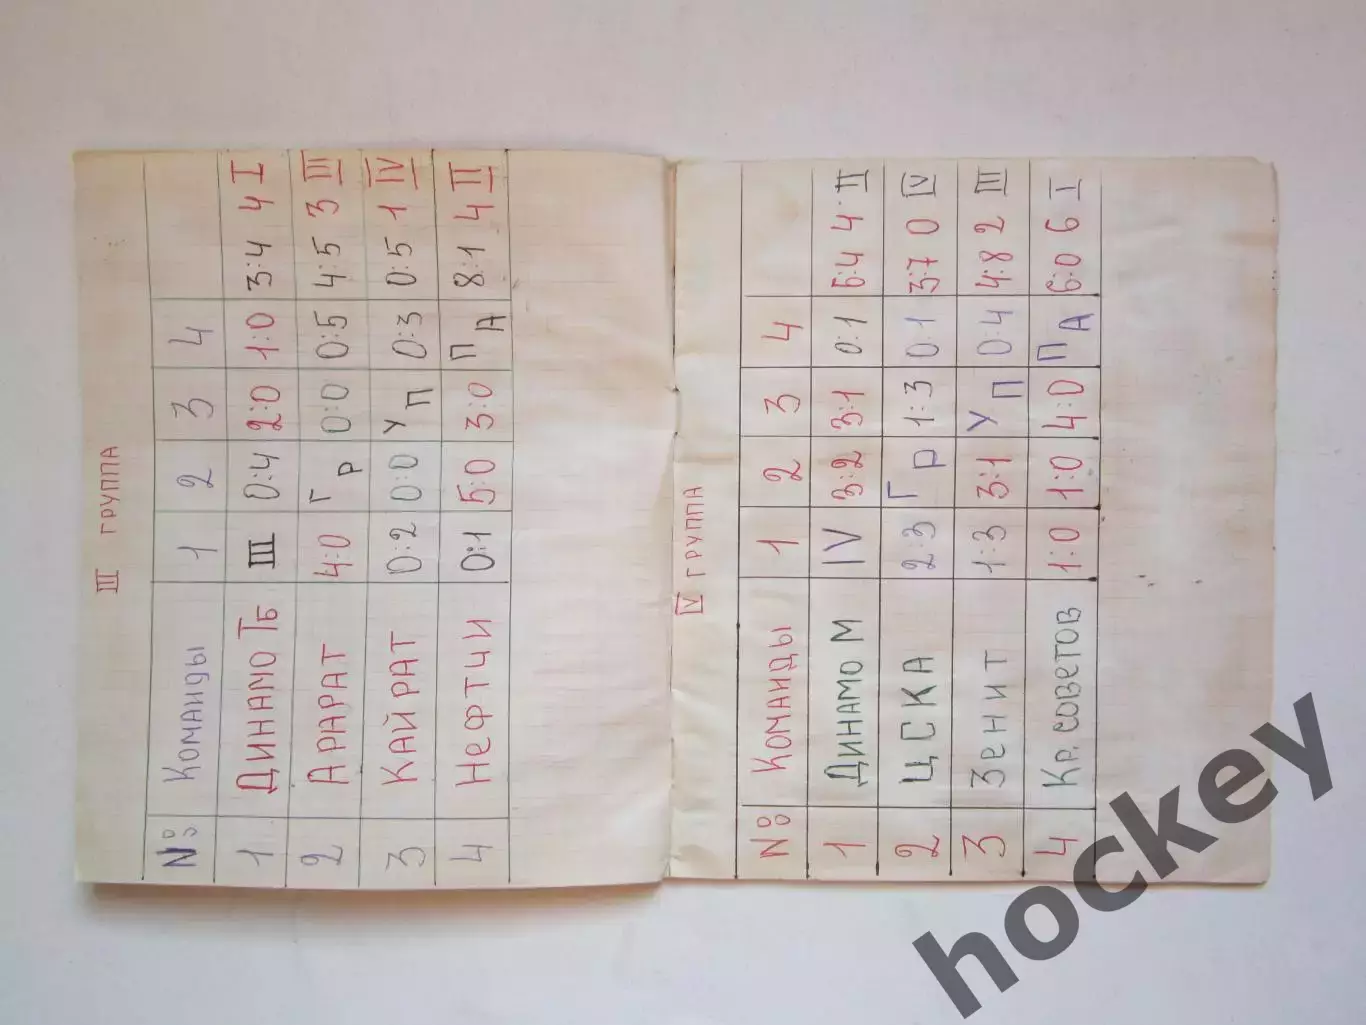 III ГРУППА
№ Команды 1 2 3 4
1 Динамо Тб III 0:4 2:0 1:0 3:4 4 I
2 Арарат 4:0 Гр 0:0 0:5 4:5 3 III
3 Кайрат 0:2 0:0 УП 0:3 0:5 1 IV
4 Нефтчи 0:1 5:0 3:0 ПА 8:1 4 II
IV ГРУППА
№ Команды 1 2 3 4
1 Динамо М IV 3:2 3:1 0:1 6:4 4 II
2 ЦСКА 2:3 Гр 1:3 0:1 3:7 0 IV
3 Зенит 1:3 3:1 УП 0:4 4:8 2 III
4 Кр. Советов 1:0 1:0 4:0 ПА 6:0 6 I
hockey